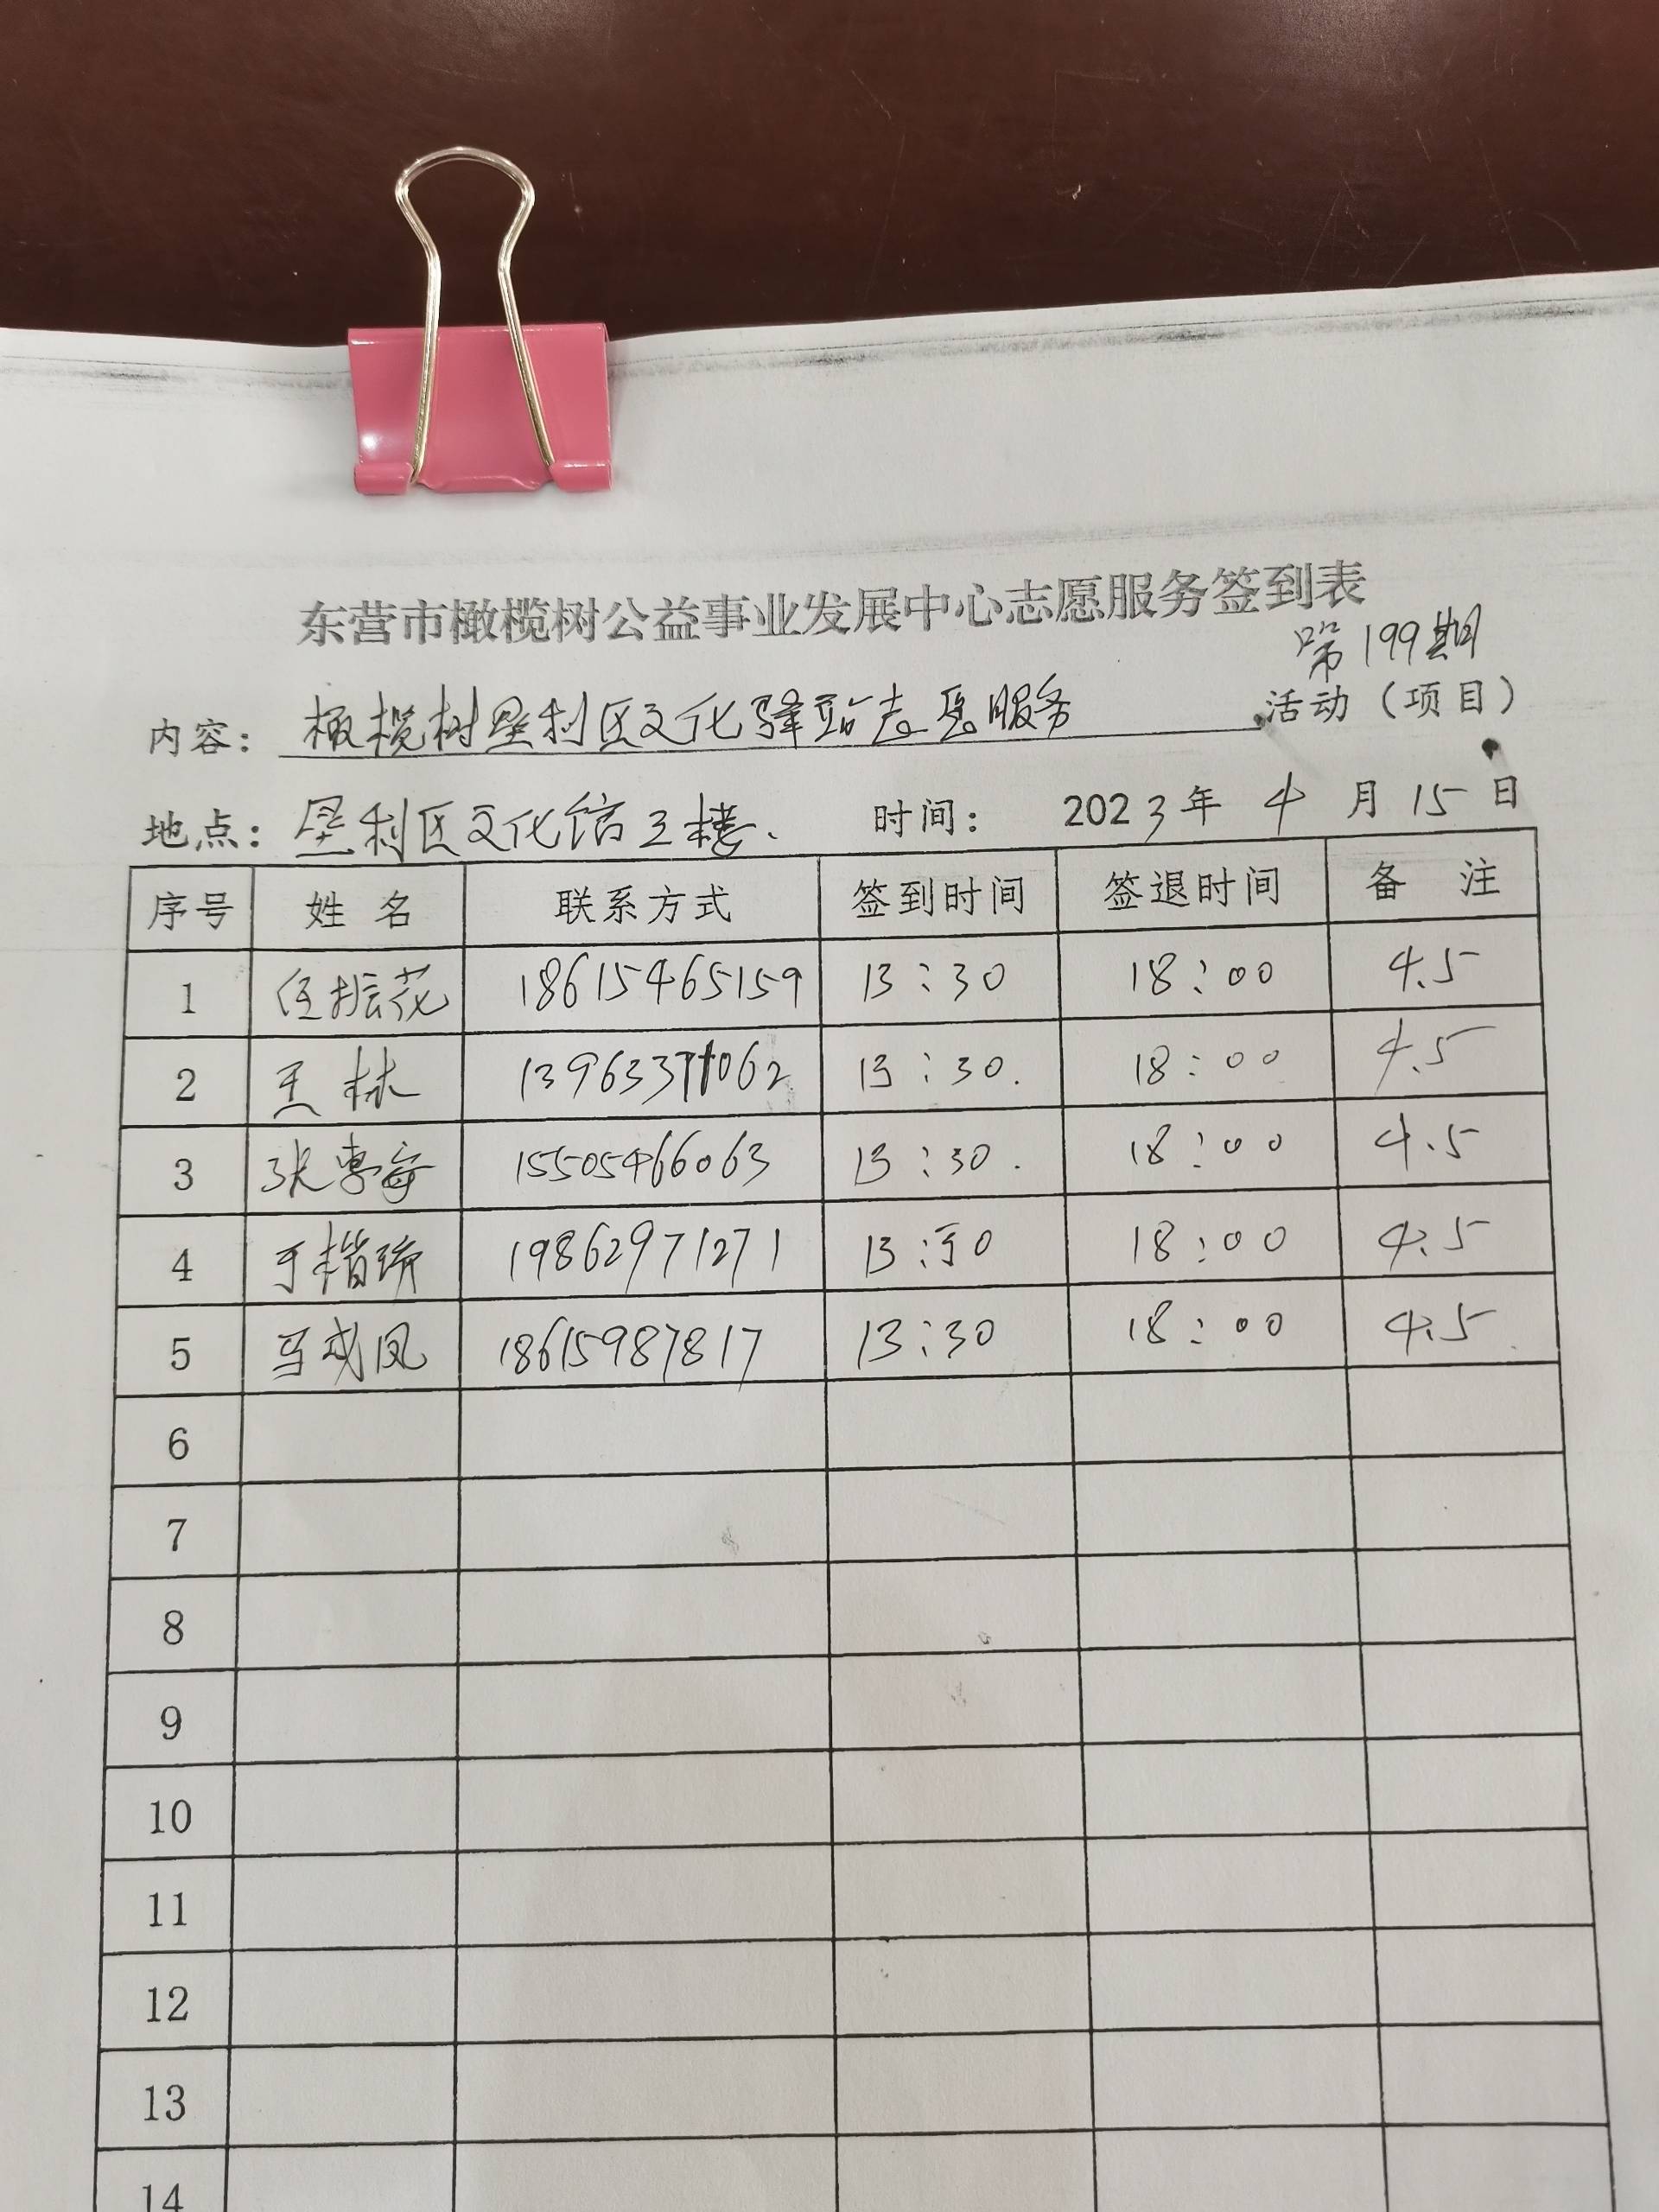 东营市橄榄树公益事业发展中心志愿服务签到表
第199期
内容: 橄榄树垦利区文化驿站志愿服务 活动（项目）
地点: 垦利区文化馆三楼. 时间: 2023年 4 月 15 日
序号 姓 名 联系方式 签到时间 签退时间 备 注
1 任振花 18615465159 13:30 18:00 4.5
2 王林 13:30. 18:00 4.5
3 张 15505466063 13:30. 18:00 4.5
4 于楷瑞 19862971271 13:30 18:00 4.5
5 马成凤 18615987817 13:30 18:00 4.5
6
7
8
9
10
11
12
13
14